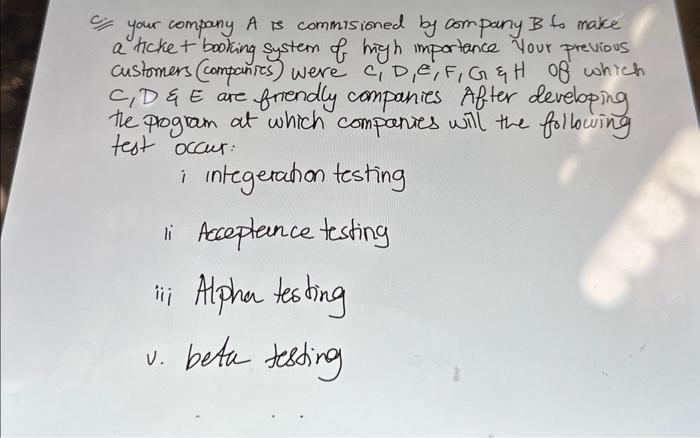 c, your company A is commisioned by company B to make
a ticket booking system of high importance Your previous
customers (companies) were C, D, E, F, G & H Of which
C, D & E are friendly companies After developing
the program at which companies will the following
test occur:
i integeration testing
ii Acceptence testing
iii Alpha testing
v. beta testing